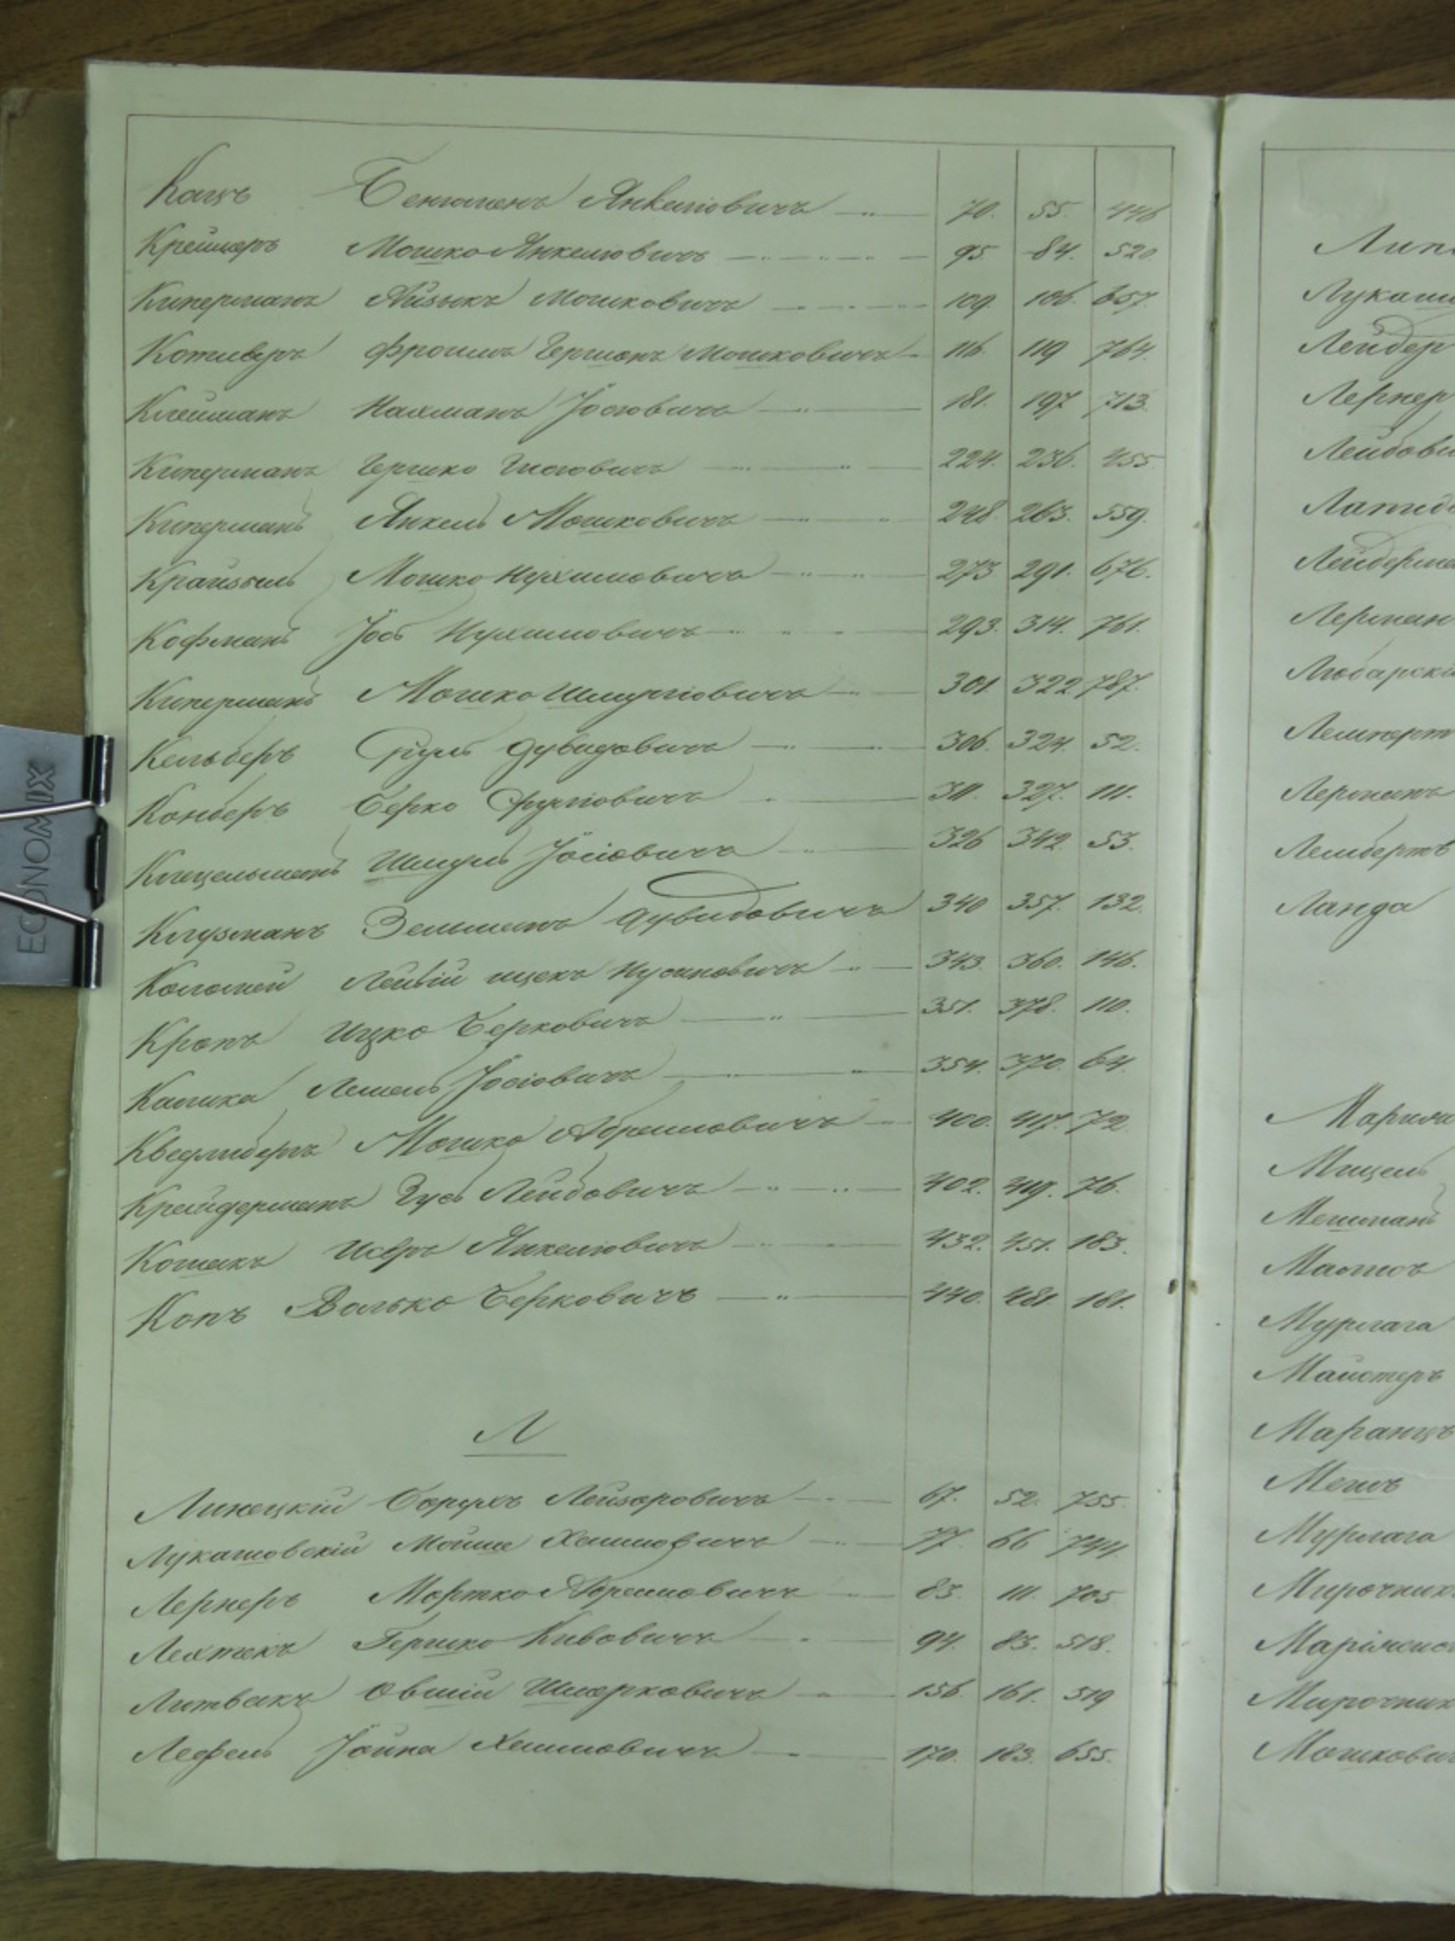 Кацъ Беньямин Янкелiовичъ 70. 55. 446
Креймеръ Мошко Янкелiовичъ 95 84. 520
Киперманъ Айзыкъ Мошковичъ 109. 106. 657.
Котляръ Фроимъ Гершонъ Мошковичъ 116. 119 764.
Клейманъ Нахманъ Іосiовичъ 181. 197 713.
Киперманъ Гершко 224. 236. 455
Киперманъ Янкель Мошковичъ 248. 263. 559.
Крайзель Мошко Нухимовичъ 273 291. 676.
Кофманъ Іось Нухимовичъ 293. 314. 761.
Киперманъ Мошко Шмулiовичъ 301 322 787.
Кельберъ Сруль Дувидовичъ 306. 324. 52.
Конберъ Берко Срулiовичъ 311. 327. 111.
Шмуль Іосiовичъ 326 342 53.
Клузманъ Зельманъ Дувидовичъ 340 357. 132.
Коломей Нусиновичъ 343. 360. 146.
Кропъ Ицко Берковичъ 351. 378. 110.
Капика Лемель Іосiовичъ 354. 370. 64.
Кведлиберъ Мошко Абрамовичъ 400. 417. 72
Крейдерманъ Зусь Лейбовичъ 402. 419. 76.
Кошакъ Исеръ Янкелiовичъ 432. 451. 183.
Копъ Волько Берковичъ 440. 481 181.
Л
Линецкiй Борухъ Лейзоровичъ 67. 52. 755.
Лукашовскiй Мойше Хаимовичъ 77. 66 744
Лернеръ Мортко Абрамовичъ 83. 111. 705
Лехтикъ Гершко Кивовичъ 94. 83. 518.
Литвакъ Овшiй Шморковичъ 156. 161. 519
Лефель Іойна Хаимовичъ 170. 183. 655.
Лукаш
Лейдер
Лернер
Лейбови
Лейдерма
Лерман
Любарск
Лерманъ
Лембертъ
Ланда
Мицель
Мешманъ
Мурлага
Майстеръ
Маранцъ
Мурлага
Мирочник
Мирочник
Мошкови
ECONOMIX